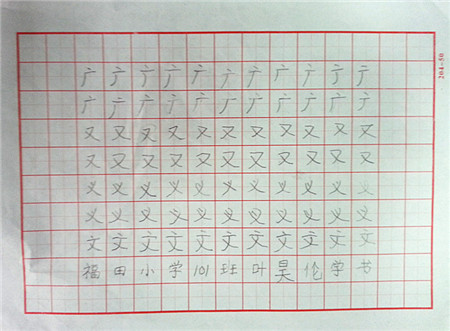 广广广广广广广广广广广
广广广广广广广广广广广
又又又又又又又又又又又
又又又又又又又又又又又
义义义义义义义义义义义
义义义义义义义义义义义
文文文文文文文文文文文
福田小学101班叶昊伦学书
204-50